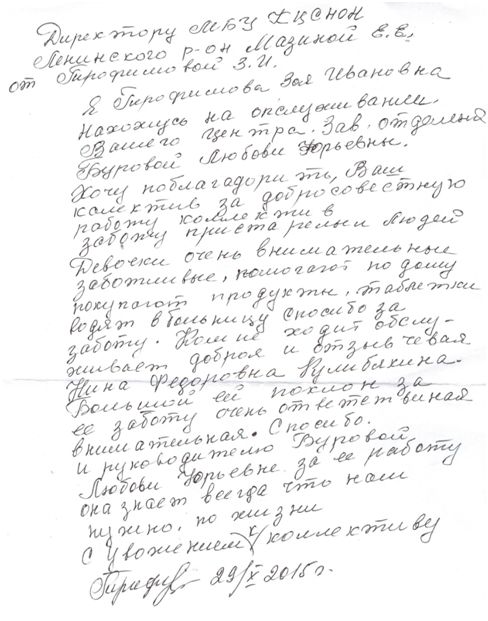 Директору МБУ ЦСНОН
Ленинского р-он Мазиной Е.Е.
от Трофимовой З.И.
Я Трофимова Зоя Ивановна
Нахожусь на опслуживании
Вашего центра. Зав. отделеня
Буровой Любови Юрьевны.
Хочу поблагадорить, Ваш
калектив за добросовестную
работу коллектив
заботу пристарелын людей
Девочки очень внимательные
заботливые, помогают по дому
покупают продукты, таблетки
водят в больницу спосибо за
заботу. Ком не ходит обслу-
живает доброя и отзывчевая
Нина Федоровна Кулибякина.
Большой ей поклон за
ее заботу очень ответствиная
внимательная. Спосибо.
и руководителю Буровой
Любови Юрьевне за ее работу
она знает всегда что нам
нужно, по жизни
с уважением к коллективу
29/X 2015 г.